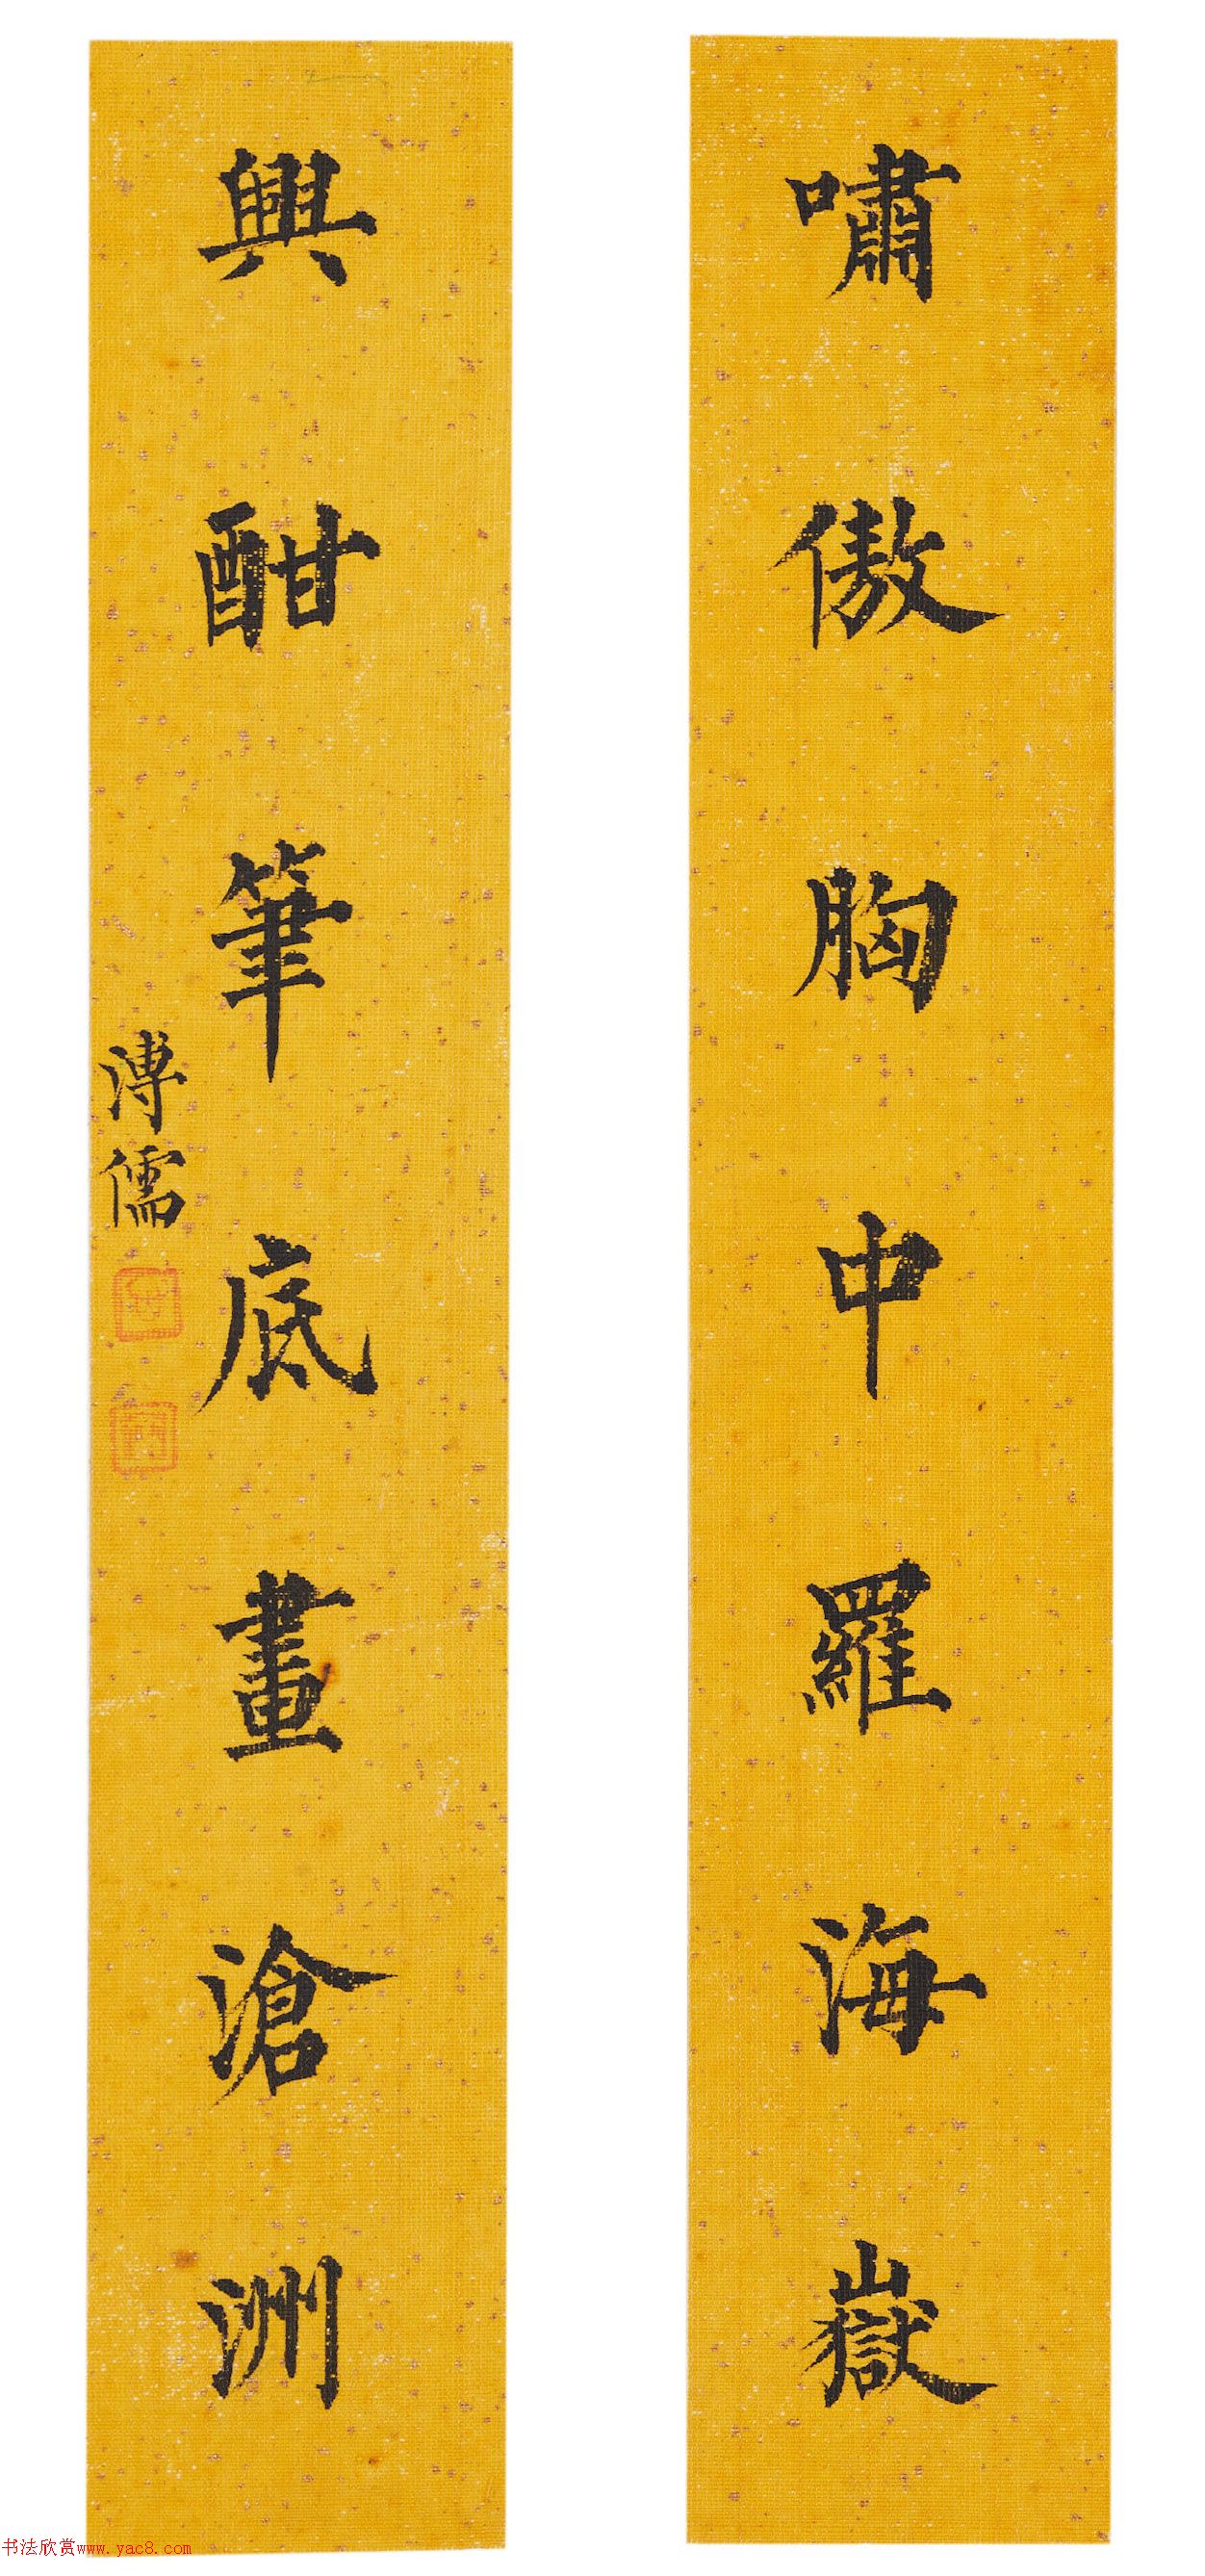 嘯傲胸中羅海嶽
興酣筆底畫滄洲
溥儒
书法欣赏www.yac8.com